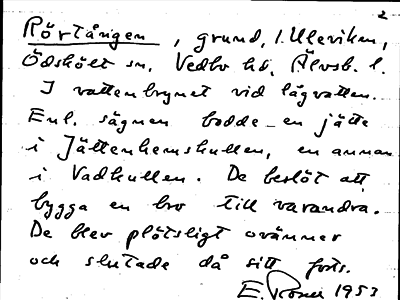 2
Rörtången, grund, i. Uleviken,
Ödskölt sn. Vedbo hd, Älvsb. l.
I vattenbrynet vid lågvatten.
Enl. sägnen bodde en jätte
i Jättenhemskullen, en annan
i Vadkullen. De beslöt att
bygga en bro till varandra.
De blev plötsligt ovänner
och slutade då sitt förts.
E. 1953